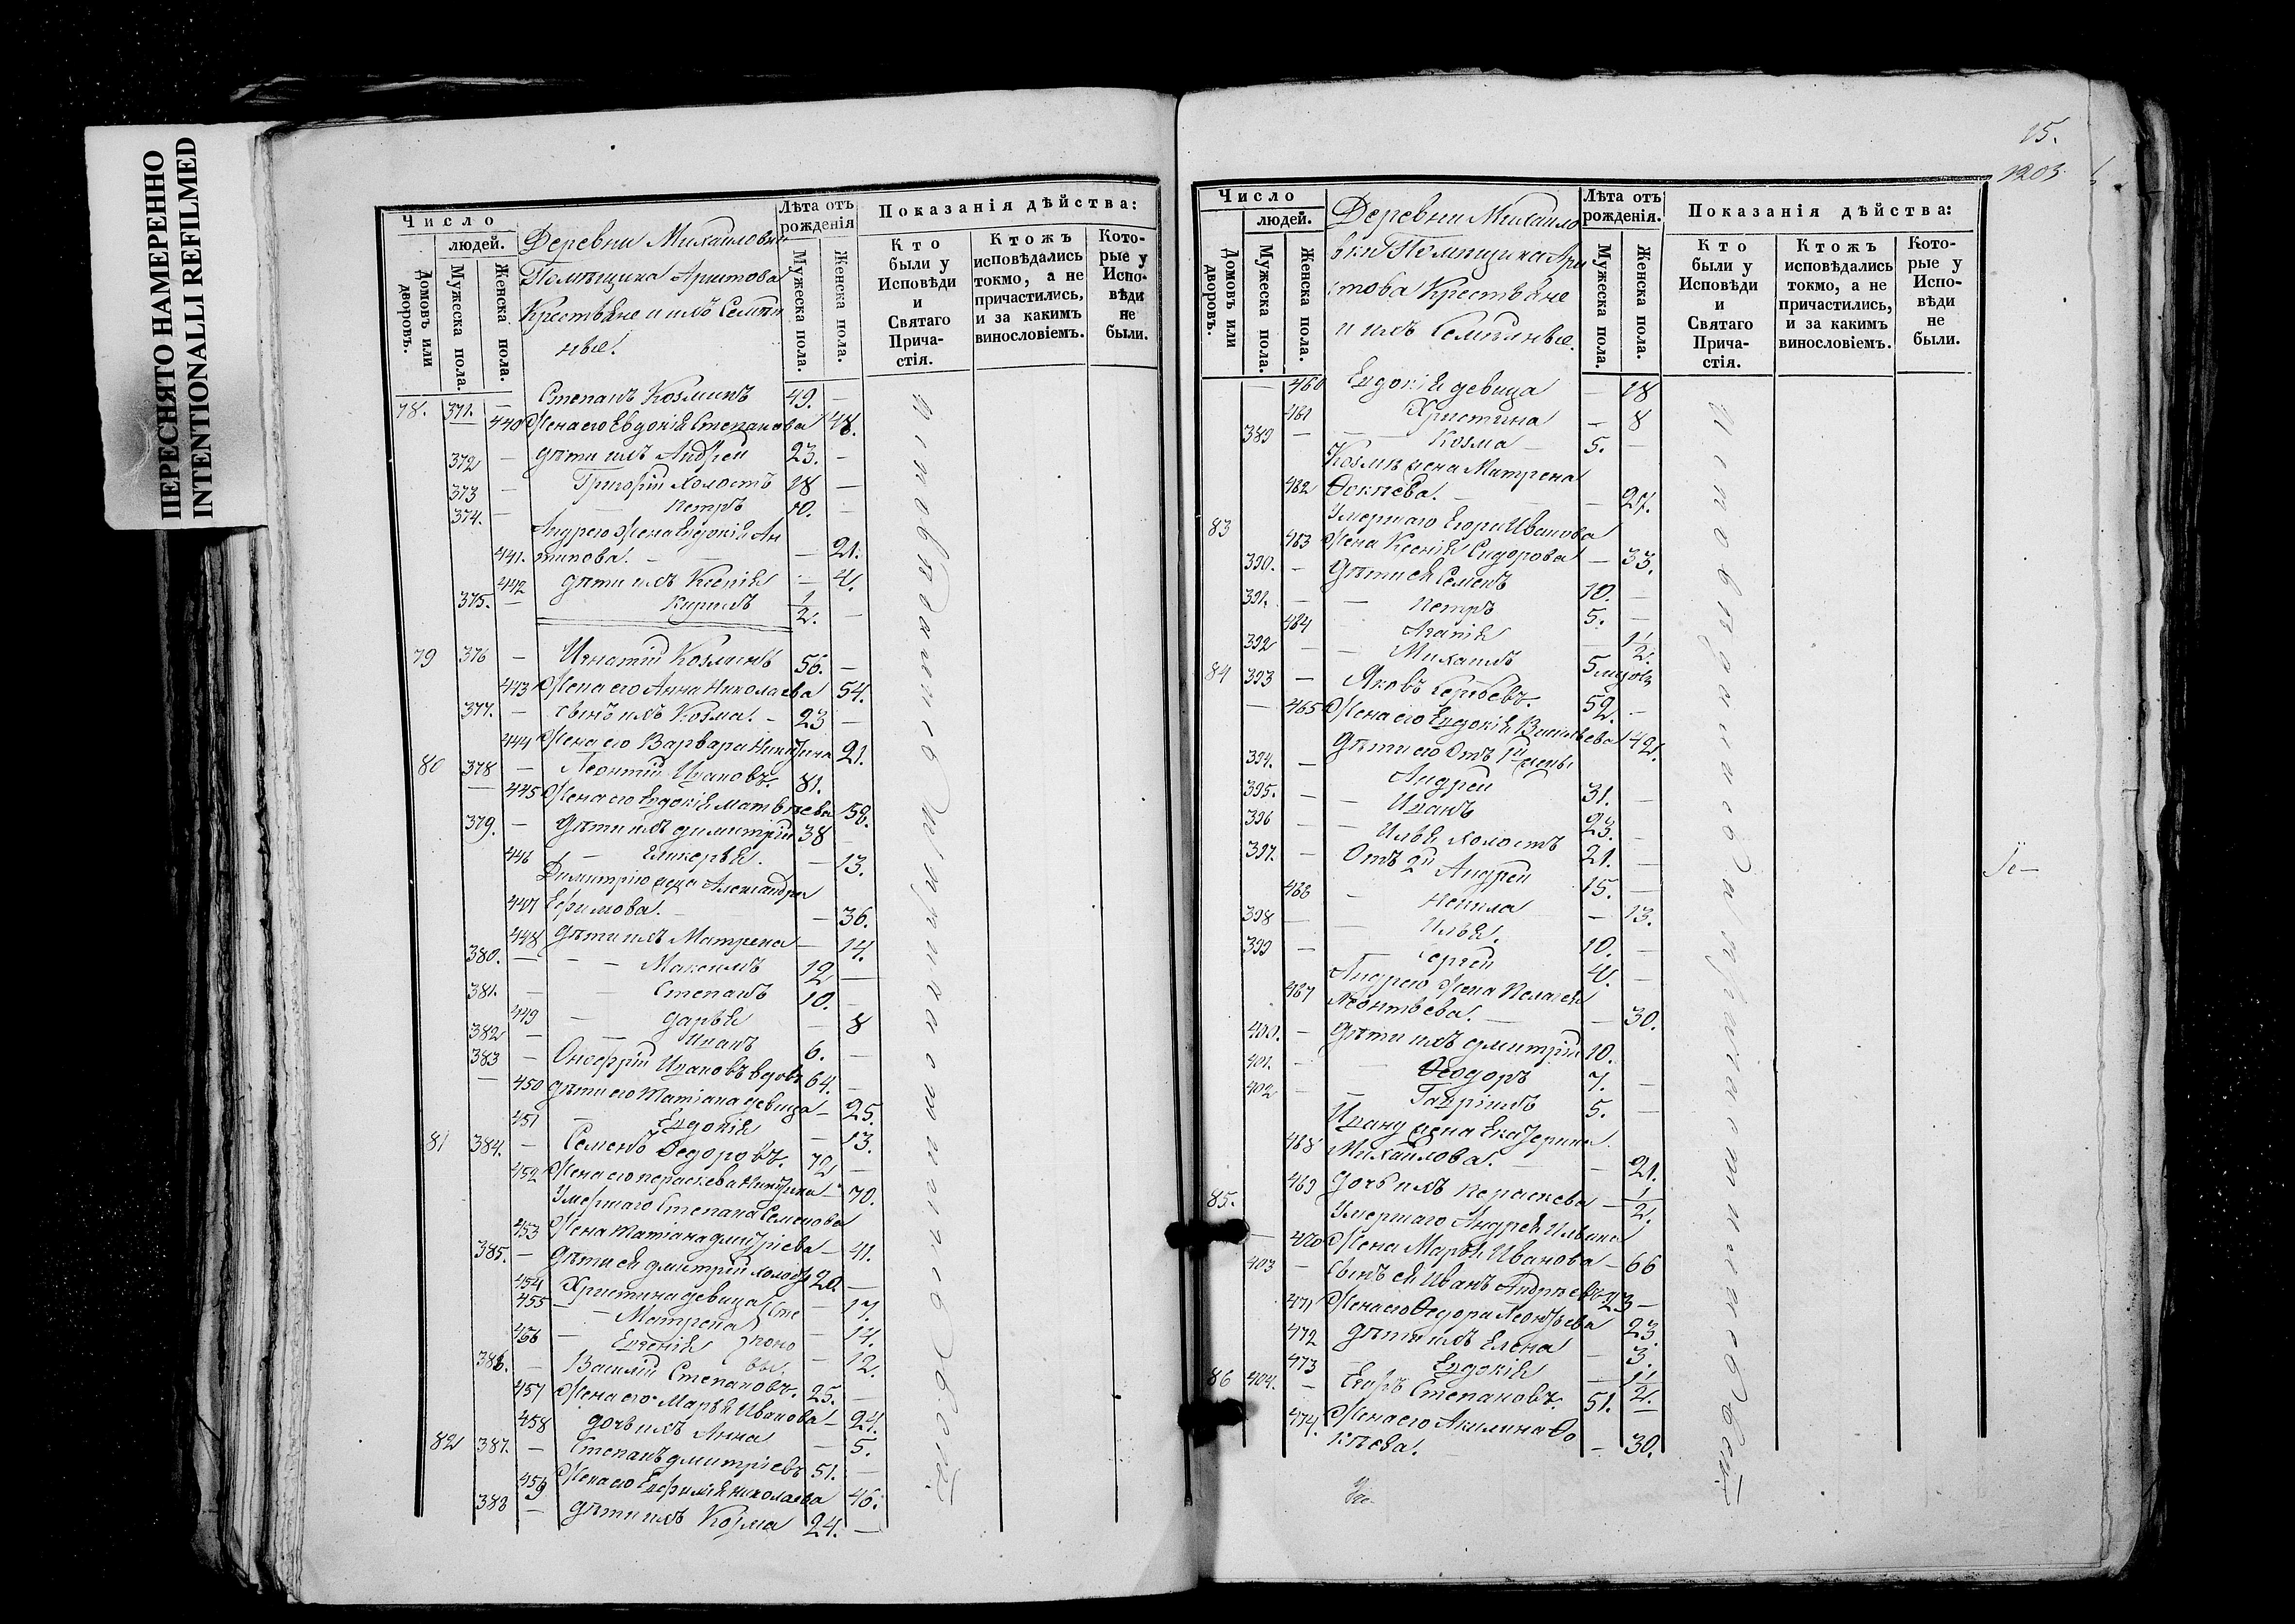 ПЕРЕСНЯТО НАМЕРЕННО
INTENTIONALLI REFILMED
Число
людей.
Домовъ или дворовъ.
Мужеска пола.
Женска пола.
Деревни Михайловки
Помѣщика Аристова
Крестьяне и ихъ Семѣй
ные.
Лѣта отъ рожденія
Мужеска пола.
Женска пола.
Показанія дѣйства:
Кто были у Исповѣди и Святаго Прича-стія.
Ктожъ исповѣдались токмо, а не причастились, и за какимъ винословіемъ.
Кото-рые у Испо-вѣди не были.
78. 371. — Степанъ Козминъ 49. —
440 Жена его Евдокія Степанова 48.
372 — дѣти ихъ Андрей 23. —
373 — Григорій холостъ 18 —
374. — Петръ 10. —
Андрею Жена Евдокія Ан
441. типова. — — 21.
442 дѣти ихъ Ксенія — 4.
375. — Кирилъ 1/2. —
79 376 — Игнатій Козминъ 56. —
443 Жена его Анна Николаева 54.
377. — сынъ ихъ Козма. — 23 —
444 Жена его Варвара Никитина 21.
80 378 — Леонтій Ивановъ. 81.
— 445 Жена его Евдокія Матвѣева 58.
379. — дѣти ихъ Димитрій 38
446 — Гликерья. — 13.
Димитрію жена Александра
447 Ефимова. — — 36.
448 дѣти ихъ Матрена — 14.
380. — — Максимъ 12 —
381. — — Степанъ 10. —
449 — Дарья — 8
382 — — Иванъ 6. —
383 — Онофрій Ивановъ вдовъ 64. —
— 450 дѣти его Татіана девица — 25.
451 — Евдокія — 13.
81 384. — Семенъ Федоровъ. 72 —
452 Жена его Пераскева Никитина — 70.
Умершаго Степана Семенова
453 Жена Татіана Дмитріева — 41.
385. — дѣти ея Дмитрій холостъ 20. —
454 Христина девица — 17.
455 — Матрена — 14.
456 — Евгенія — 12.
Степановы
386. — Василій Степановъ. 25. —
457 Жена его Марья Иванова — 24.
458 дочь ихъ Анна — 5.
82 387. — Степанъ Дмитріевъ 51. —
459 Жена его Евфимія Николаева 46.
388 — дѣти ихъ Козма 24. —
Исповѣдались и причастились Всѣ
15.
1203.
Число
людей.
Домовъ или дворовъ.
Мужеска пола.
Женска пола.
Деревни Михайло
вки Помѣщика Ари
стова Крестьяне
и ихъ Семѣйные.
Лѣта отъ рожденія.
Мужеска пола.
Женска пола.
Показанія дѣйства:
Кто были у Исповѣди и Святаго Прича-стія.
Ктожъ исповѣдались токмо, а не причастились, и за какимъ винословіемъ.
Кото-рые у Испо-вѣди не были.
— 460 Евдокія девица — 18
461 Христина — 8
389 — — Козма — 5. —
Козмѣ жена Матрена
462 Фокѣева. — — 27.
83 Умершаго Егора Иванова
463 Жена Ксенія Сидорова — 33.
390. — Дѣти ея Семенъ 10. —
391. — — Петръ 5. —
464 — Агапія — 1 1/2.
392 — — Михаилъ 5 мѣсяц
84 393 — Яковъ Сергѣевъ. 52. —
— 465 Жена его Евдокія Васильева 42.
Дѣти его отъ 1й жены
394. — Андрей 31. —
395. — — Иванъ 23. —
396 — Илья холостъ 21. —
397. — Отъ 2й Андрей 15. —
466 — Ненила — 13.
398 — — Илья. 10. —
399 — Сергей 4. —
Андрею Жена Пелагея
467 Леонтьева. — — 30.
400. — Дѣти ихъ Дмитрій 10.
401. — — Феодоръ 7. —
402 — — Гавріилъ 5. —
Ивану жена Екатерина
468 Михайлова. — — 21.
469 дочь ихъ Пераскева — 1/2.
85. Умершаго Андрея Ильина
— 470 Жена Марья Иванова — 66
403 — сынъ ея Иванъ Андрѣевъ 23 —
471 Жена его Федора Леонтьева 23
472 дѣти ихъ Елена — 3.
473 — Евдокія — 1 1/2.
86 404. — Егоръ Степановъ. 51. —
474. Жена его Акилина Фо
кѣева. — 30.
Исповѣдались и причастились Всѣ